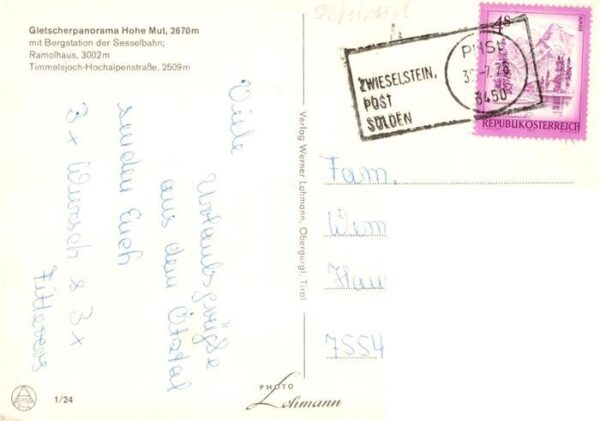 Gletscherpanorama Hohe Mut, 2670m
mit Bergstation der Sesselbahn;
Ramolhaus, 3002m
Timmelsjoch-Hochalpenstraße, 2509m
Viele
Urlaubsgrüße
aus dem Ötztal
senden Euch
3 x Wunsch u. 3 x
Verlag Werner Lohmann, Obergurgl, Tirol
Österreich
ZWIESELSTEIN,
POST
SÖLDEN
6450
4S
REPUBLIK ÖSTERREICH
Fam.
Wim
Hau
7554
1/24
PHOTO
Lohmann